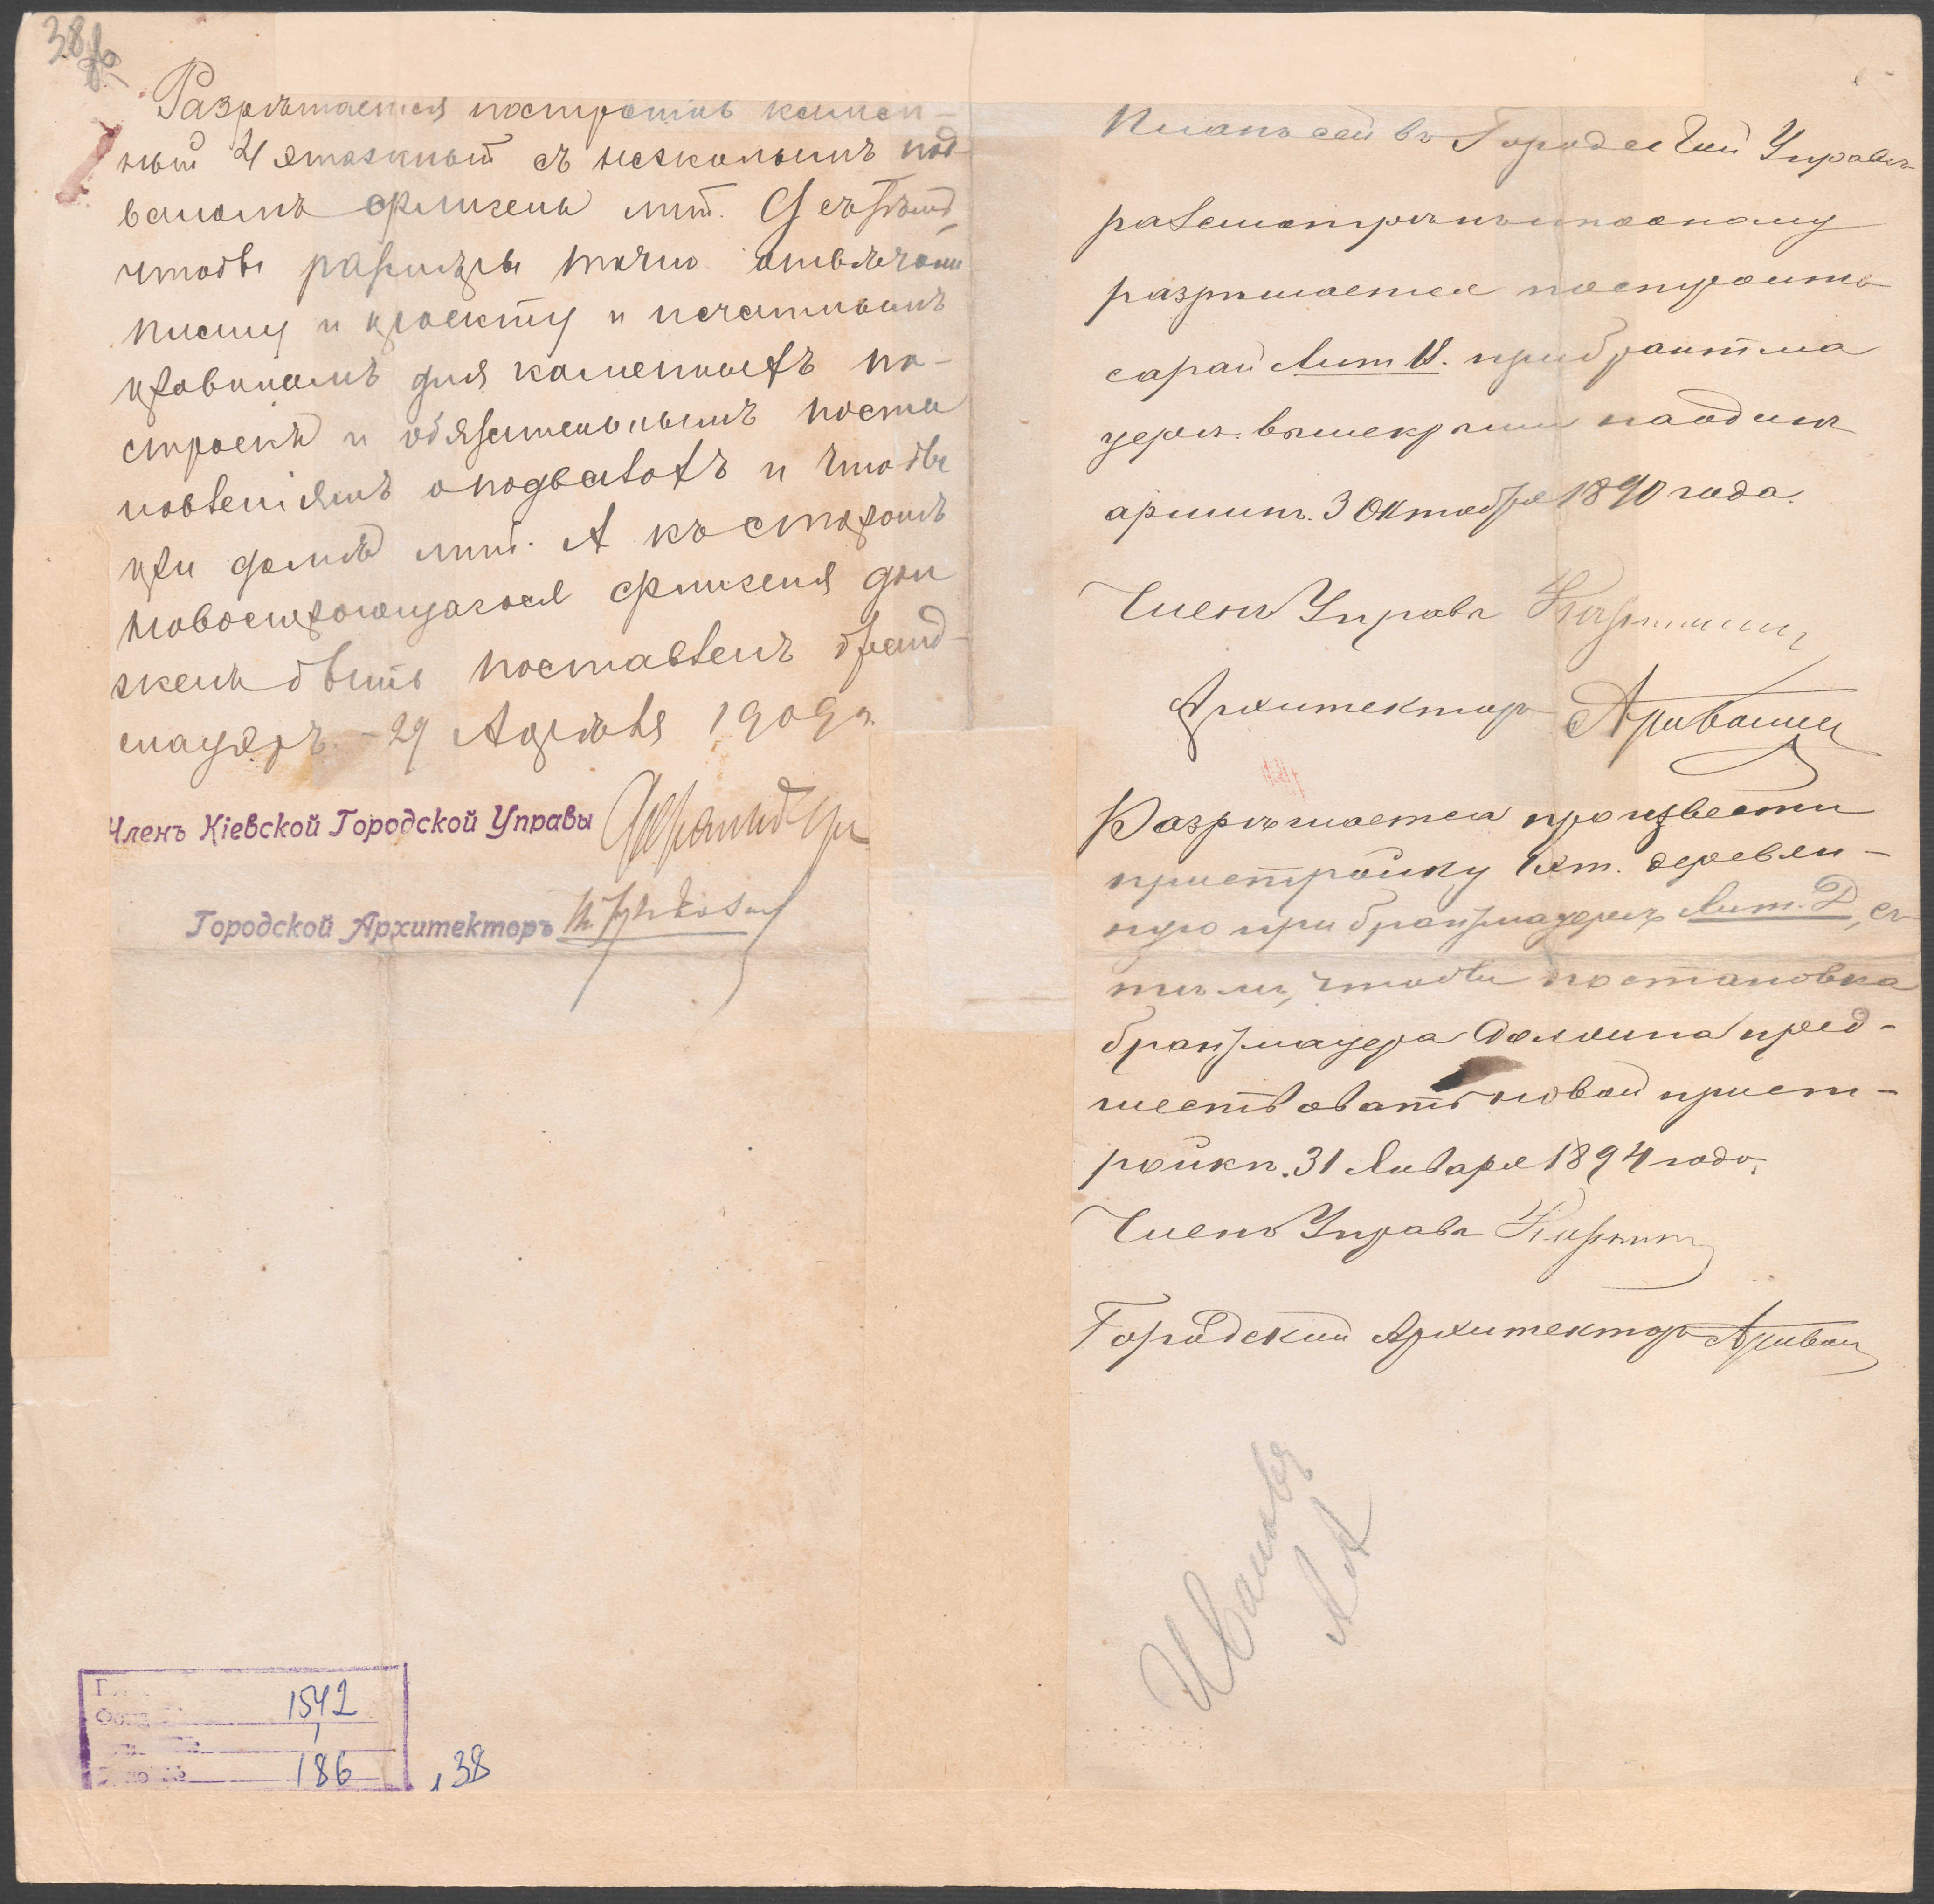 38 об
Разрѣшается построить камен-
ный 4 этажный съ нежилымъ под-
валомъ флигель лит. G съ тѣмъ,
чтобы размѣры точно отвѣчали
плану и проекту и печатнымъ
правиламъ для каменныхъ по-
строекъ и обязательнымъ поста
новленіямъ о подвалахъ и чтобы
при домѣ лит. А къ сторонѣ
новостроющагося флигеля дол
женъ быть поставленъ бранд-
мауэръ. - 29 Апрѣля 1909 г.
Членъ Кіевской Городской Управы
Городской Архитекторъ
Фонд 1542
1
186 , 38
Планъ сей въ Городской Управѣ
разсмотрѣнъ и по оному
разрѣшается построить
сарай Лит И. при брантма
уерѣ выше крыши на одинъ
аршинъ. 3 Октября 1890 года.
Членъ Управы
Архитекторъ
Разрѣшается произвести
пристройку 1 эт. деревян-
ную при брандмауерѣ Лит. D, съ
тѣмъ, чтобы постановка
брандмауера должна пред-
шествовать новой прист-
ройкѣ. 31 Января 1894 года.
Членъ Управы
Городской Архитекторъ
Иванов